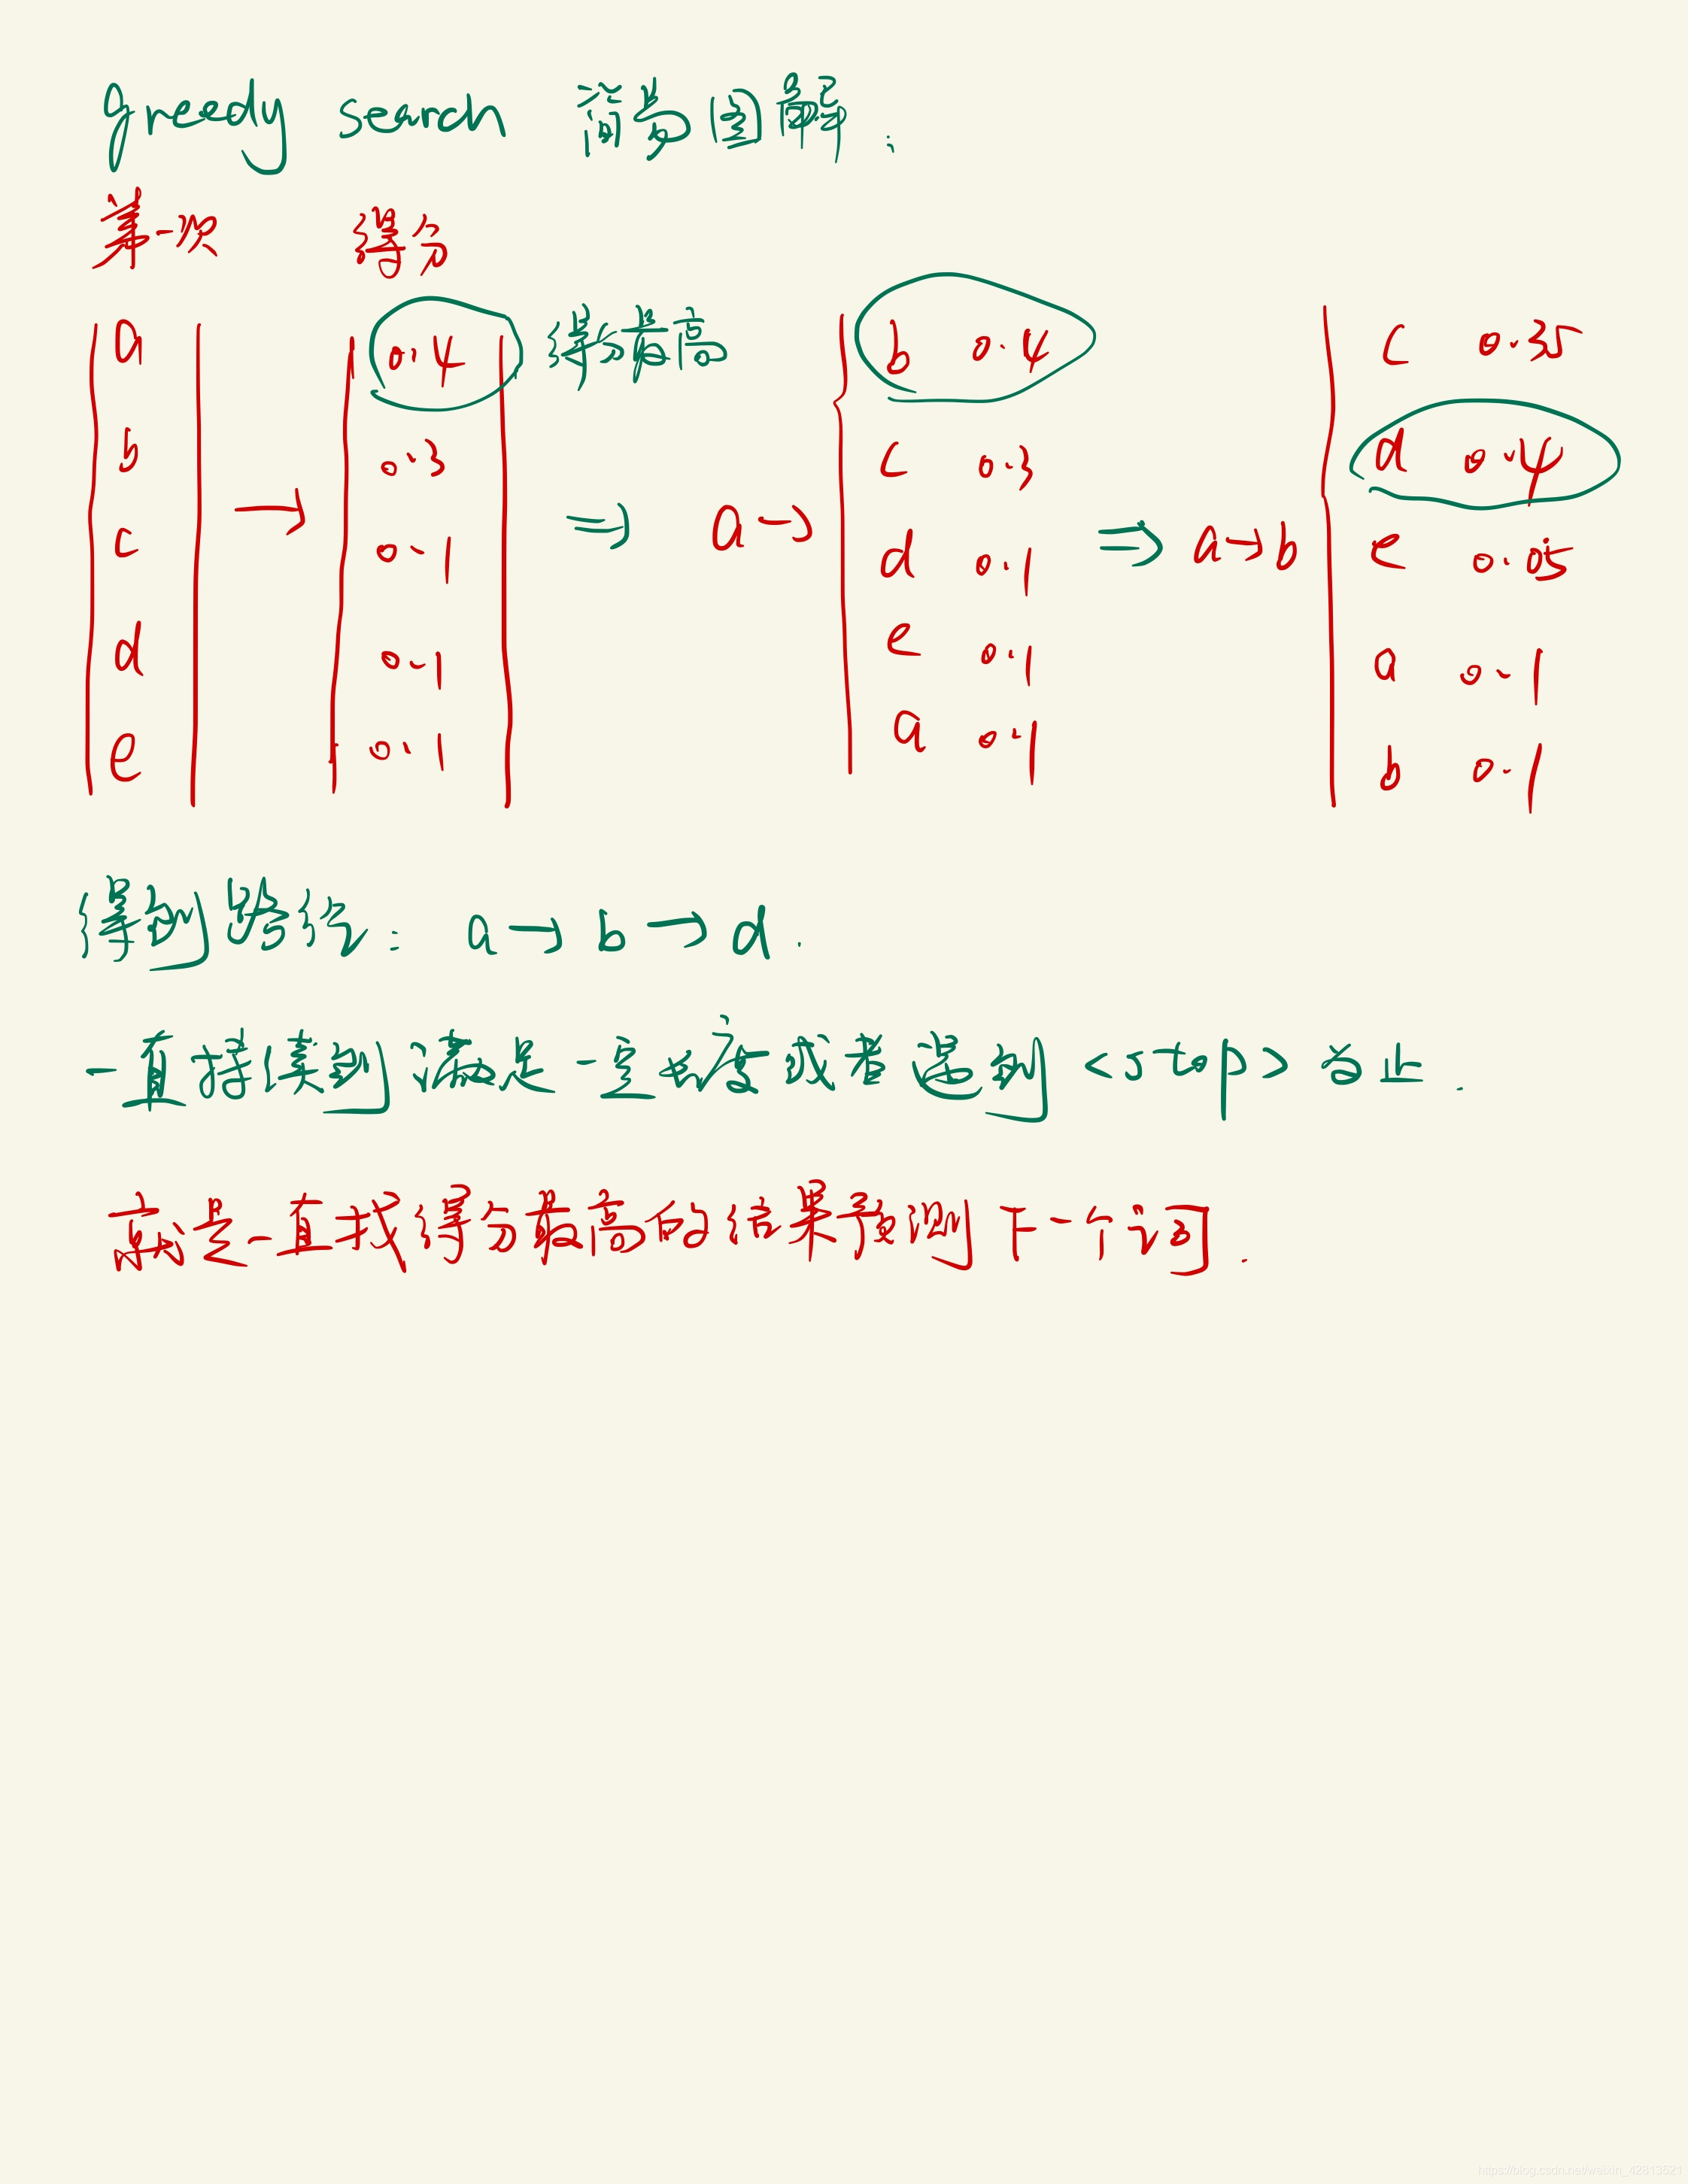 greedy search 简易图解:
第一次 得分
a 0.4 得分最高 b 0.4 c 0.35
b 0.3 c 0.3 d 0.4
c → 0.1 ⇒ a→ d 0.1 ⇒ a→b e 0.05
d 0.1 e 0.1 a 0.1
e 0.1 a 0.1 b 0.1
得到路径: a→b→d.
一直持续到满足一定长度或者遇到<stop>为止.
就是一直找得分最高的结果预测下一个词.
https://blog.csdn.net/weixin_42813521